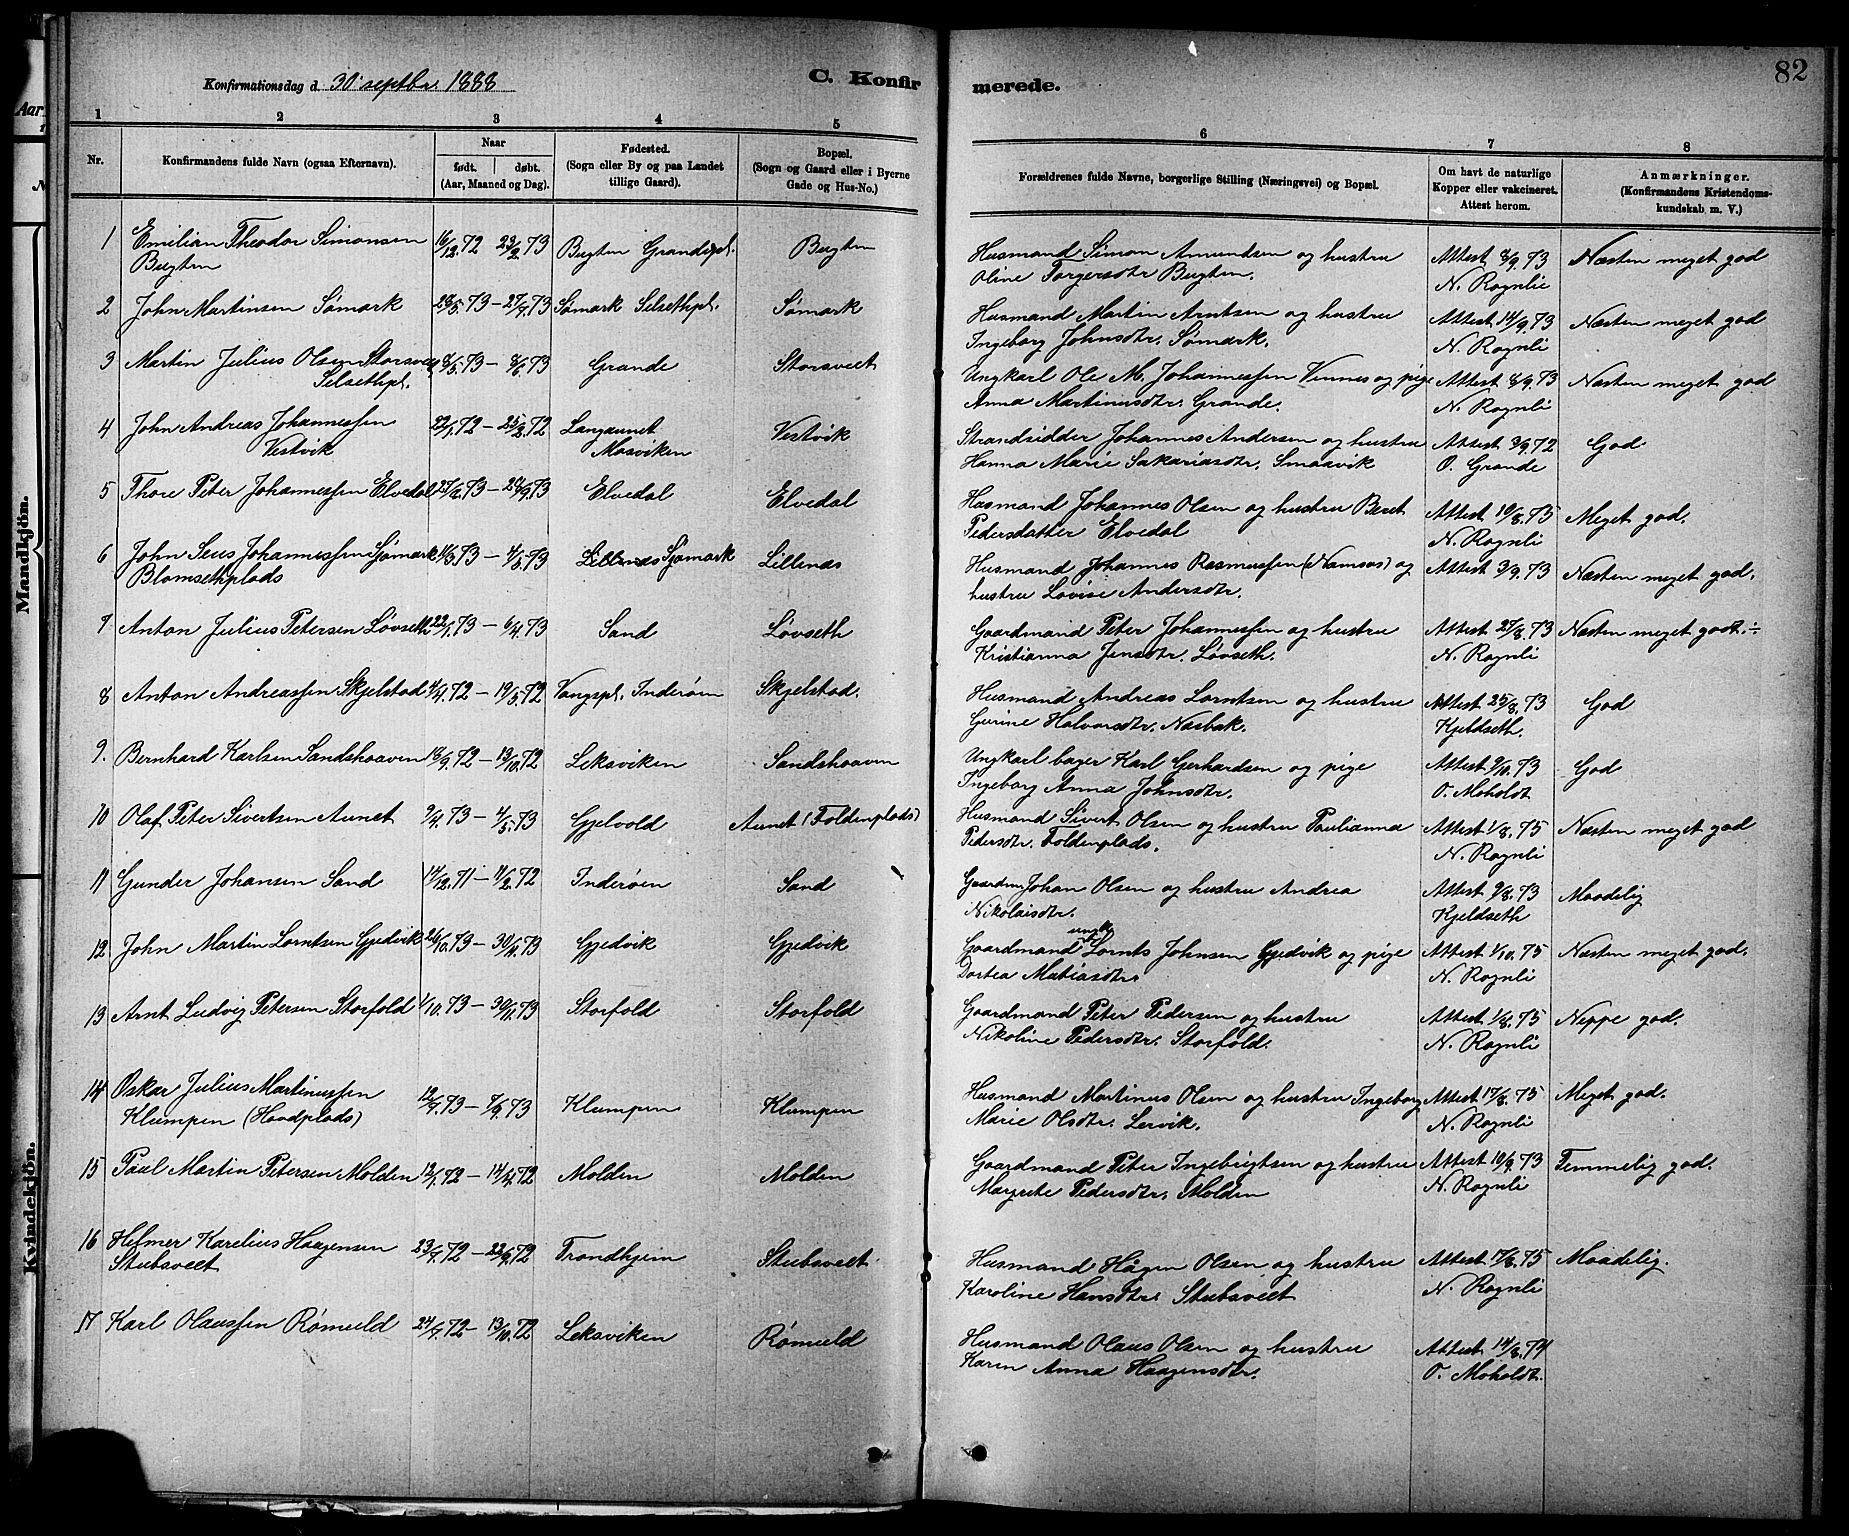 82
Konfirmationsdag d. 30 septbr. 1888
C. Konfirmerede.
1 2 3 4 5 6 7 8
Nr.
Konfirmandens fulde Navn (ogsaa Efternavn).
Naar
født. døbt.
(Aar, Maaned og Dag).
Fødested.
(Sogn eller By og paa Landet
tillige Gaard).
Bopæl.
(Sogn og Gaard eller i Byerne
Gade og Hus-No.)
Forældrenes fulde Navne, borgerlige Stilling (Næringsvei) og Bopæl.
Om havt de naturlige
Kopper eller vakcineret.
Attest herom.
Anmærkninger.
(Konfirmandens Kristendoms-
kundskab m. V.)
Mandkjön.
Kvindekjön.
1 Emilian Theodor Simonsen 16/12.72 23/2.73 Bugten Grandepl. Bugten Husmand Simon Amundsen og hustru Attest 8/9.73 Næsten meget god
Bugten Oline Torgersdtr Bugten. N. Rognli
2 John Martinsen Sømark 28/5.73 – 27/7.73 Sømark Selsethpl. Sømark Husmand Martin Arntsen og hustru Attest 14/9.73 Næsten meget god
Ingeborg Johnsdtr. Sømark. N. Rognli
3 Martin Julius Olsen Storsveet 8/5.73 – 8/6.73 Grande Storsveet Ungkarl Ole M. Johannessen Vinnes og pige Attest 8/9.73 Næsten meget god
Selsethpl. Anna Martinusdtr. Grande. N. Rognli
4 John Andreas Johannessen 22/1.72 – 25/2.72 Langaunet Vestvik Strandsidder Johannes Andersen og hustru Attest 3/9.72 God
Vestvik Mosviken Hanna Marie Sakariasdtr. Smaavik O. Grande
5 Thore Peter Johannessen Elvedal 23/2.73 – 28/9.73 Elvedal Elvedal Husmand Johannes Olsen og hustru Beret Attest 10/8.75 Meget god.
Pedersdatter Elvedal N. Rognli
6 John Seus Johannessen Sjømark 11/3.73 – 4/5.73 Lillenæs Sjømark Lillenæs Husmand Johannes Rasmussen (Namsos) og Attest 3/9.73 Næsten meget god.
Blomsethplads hustru Løvise Andersdtr.
7 Anton Julius Petersen Løvseth 22/1.73 – 6/4.73 Sand Løvseth Gaardmand Peter Johannessen og hustru Attest 27/8.73 Næsten meget godt. ÷
Kristianna Jensdtr. Løvseth. N. Rognli
8 Anton Andreassen Skjelstad 4/4.72 – 19/5.72 Vangspl. Inderøen Skjelstad. Husmand Andreas Lorntsen og hustru Attest 25/8.73 God
Gurine Halvorsdtr. Næsbak. Kjeldseth.
9. Bernhard Karlsen Sandshaaven 18/9.72 – 13/10.72 Leksviken Sandshaaven Ungkarl bager Karl Gerhardsen og pige Attest 9/10.73 God
Ingeborg Anna Johnsdtr. O. Moholdt
10 Olaf Peter Sivertsen Aunet 9/4.73 – 4/5.73 Gjelvold Aunet (Foldenplads) Husmand Sivert Olsen og hustru Paulianna Attest 1/8.75 Næsten meget god
Pedersdtr. Foldenplads. N. Rognli
11 Gunder Johansen Sand 14/12.71 – 11/2.72 Inderøen Sand Gaardm. Johan Olsen og hustru Andrea Attest 9/8.73 Maadelig
Nikolaisdtr. Kjeldseth
12 John Martin Lorntsen Gjedvik 26/10.73 – 30/11.73 Gjedvik Gjedvik Gaardmand ungk. Lornts Johnsen Gjedvik og pige Attest 1/10.75 Næsten meget god.
Dortea Matiasdtr. N. Rognli
13 Arnt Ludvig Petersen Storfold 1/10.73 – 30/11.73 Storfold Storfold Gaardmand Peter Pedersen og hustru Attest 1/8.75 Neppe god.
Nikoline Pedersdtr. Storfold. N. Rognli
14 Oskar Julius Martinussen 12/7.73 – 7/9.73 Klumpen Klumpen Husmand Martinus Olsen og hustru Ingeborg Attest 17/8.75 Meget god.
Klumpen (Hovdplads) Marie Olsdtr. Lervik. N. Rognli
15 Paul Martin Petersen Molden 12/1.72 – 14/4.72 Molden Molden Gaardmand Peter Ingebrigtsen og hustru Attest 10/9.73 Temmelig god.
Margrete Pedersdtr. Molden N. Rognli
16 Hilmer Karelius Haagensen 23/7.72 – 22/9.72 Trondhjem Stubsveet Husmand Hågen Olsen og hustru Attest 17/8.75 Maadelig.
Stubsveet Karoline Hansdtr. Stubsveet N. Rognli
17 Karl Olaussen Rømuld 24/7.72 – 13/10.72 Leksviken Rømuld Husmand Olaus Olsen og hustru Attest 14/8.74
Karen Anna Haagensdtr. O. Moholdt.